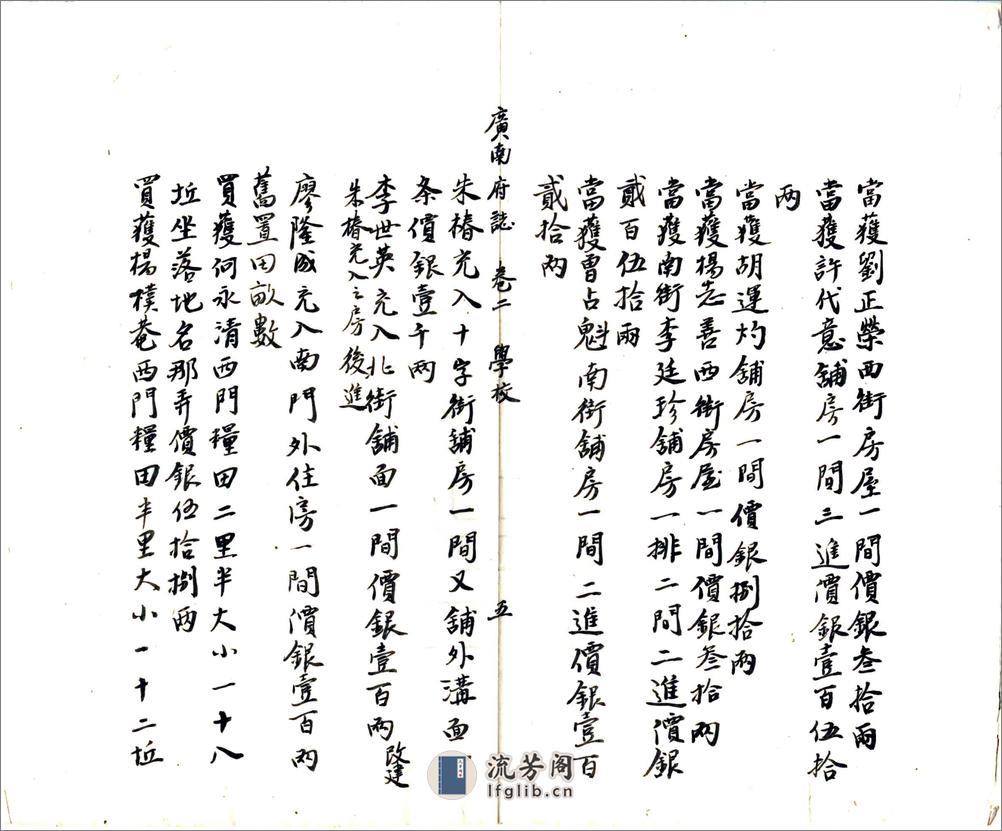 當獲劉正榮西街房屋一間價銀叁拾兩
當獲許代意舖房一間三進價銀壹百伍拾
兩
當獲胡運灼舖房一間價銀捌拾兩
當獲楊志善西街房屋一間價銀叁拾兩
當獲南街李廷珍舖房一排二間二進價銀
貳百伍拾兩
當獲曹占魁南街舖房一間二進價銀壹百
貳拾兩
廣南府誌 卷二 學校 五
朱椿充入十字街舖房一間又舖外溝面一
条價銀壹千兩
李世英充入北街舖面一間價銀壹百兩改建
朱椿充入之房後進
廖隆成充入南門外住房一間價銀壹百兩
舊置田畝數
買獲何永清西門糧田二里半大小一十八
坵坐落地名那弄價銀伍拾捌兩
買獲楊樸菴西門糧田半里大小一十二坵
流芳阁
lfglib.cn